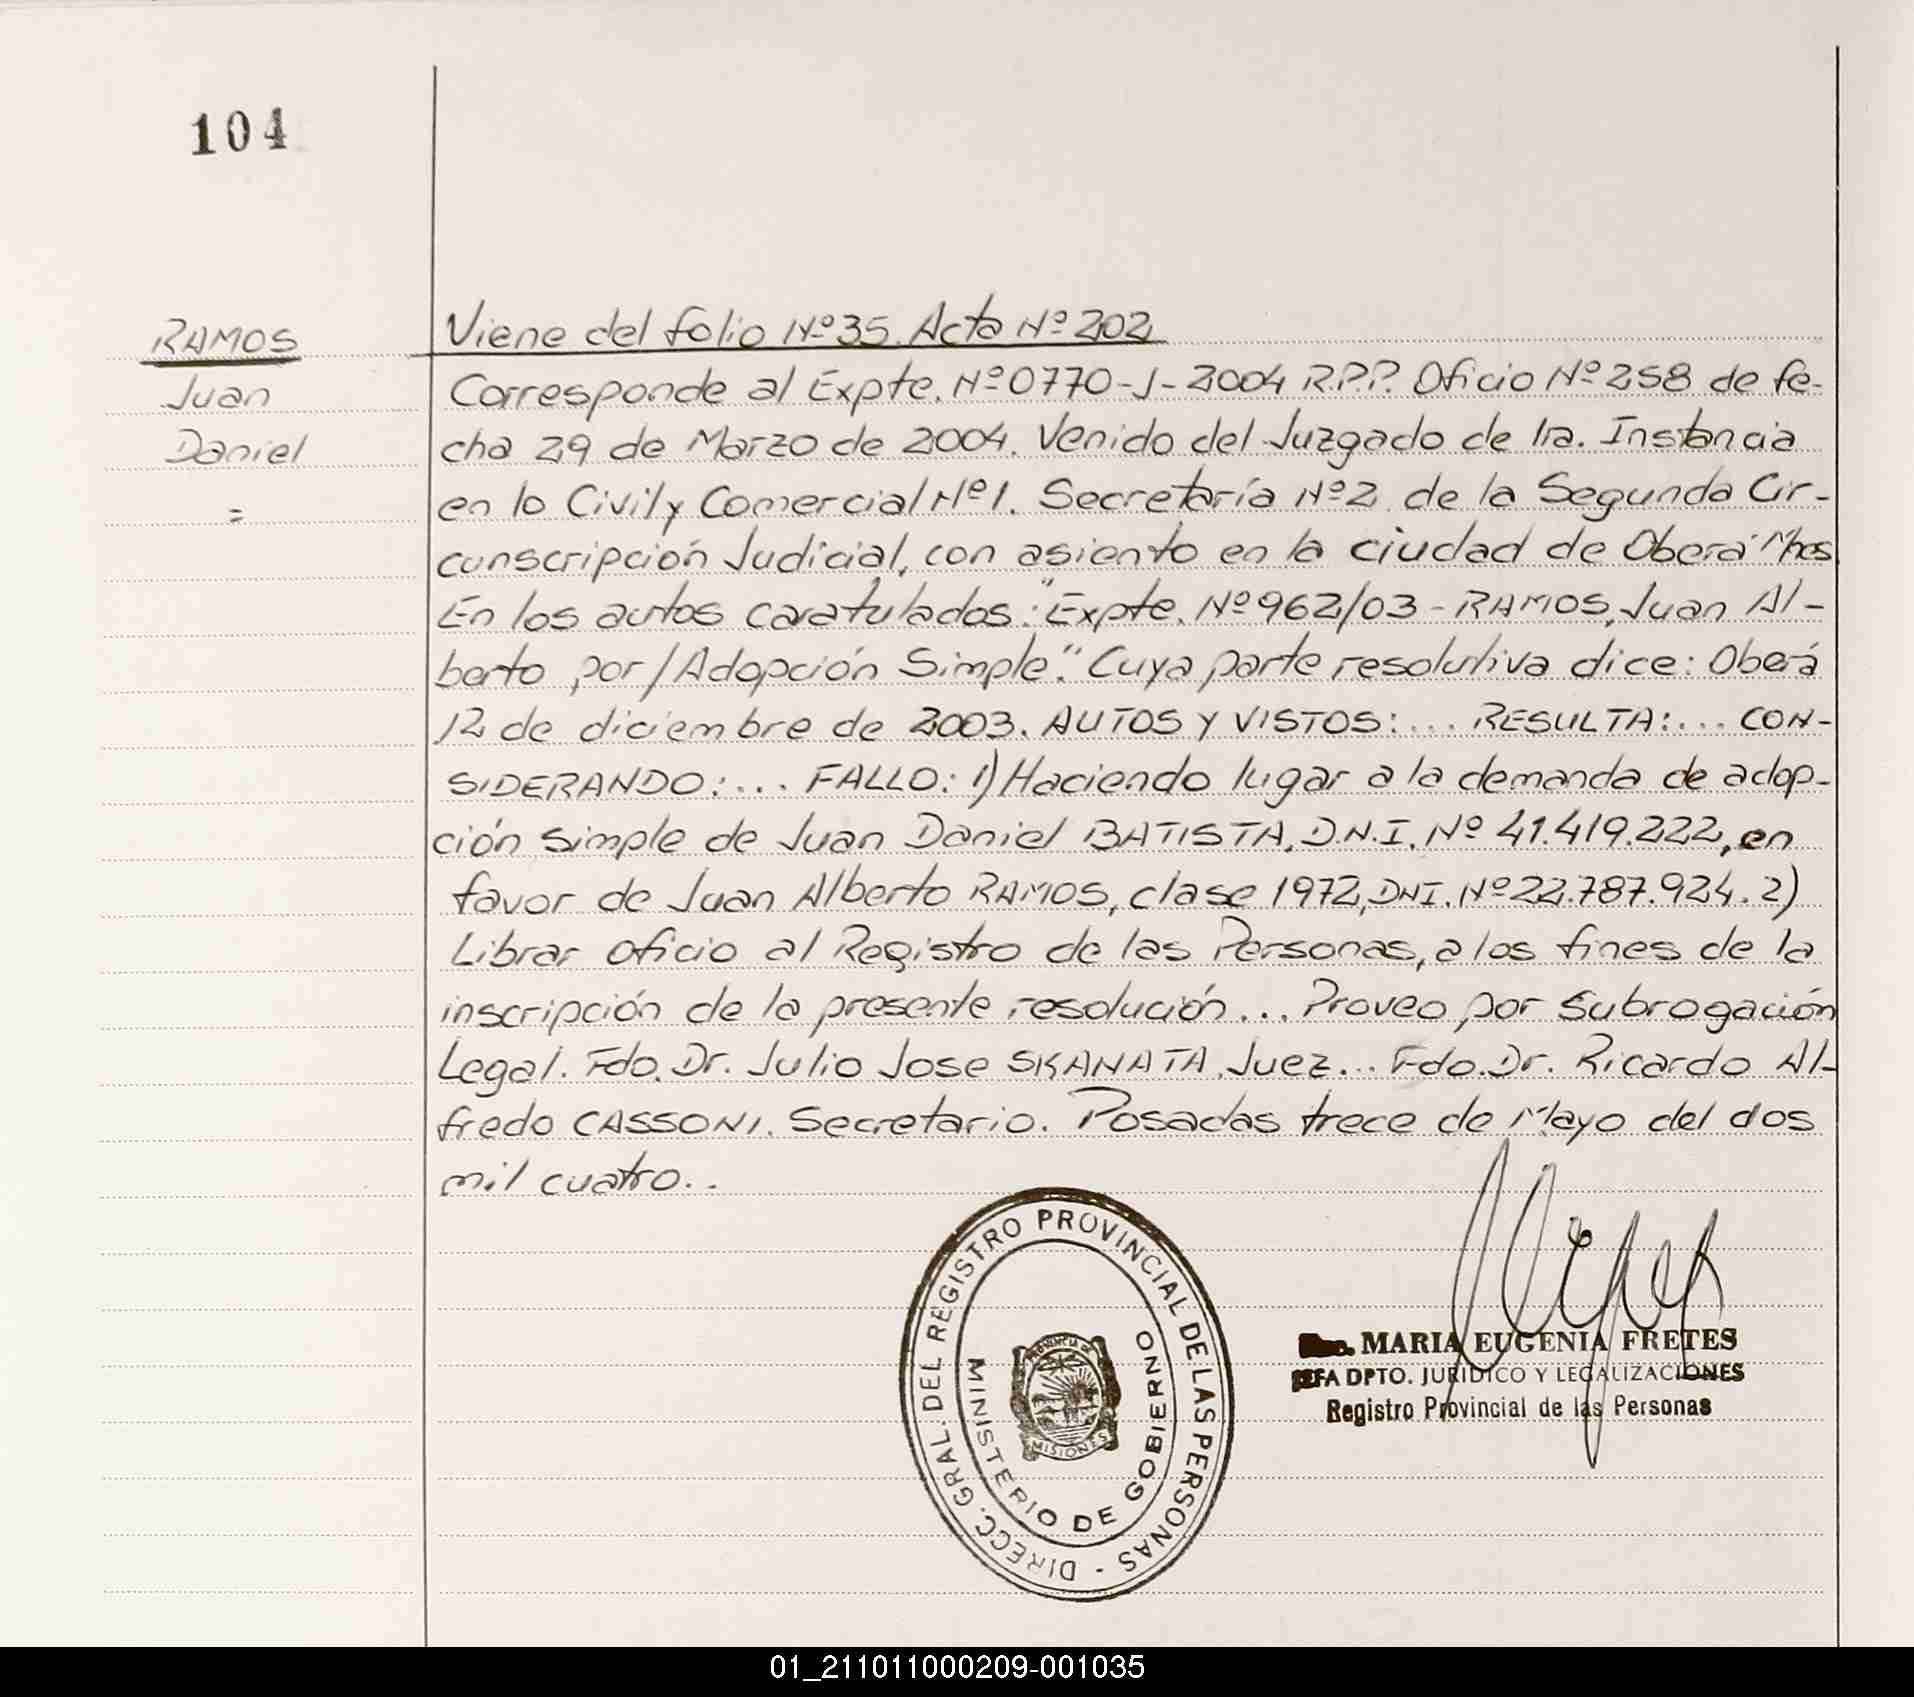 104
RAMOS
Juan
Daniel
=
Viene del folio Nº 35. Acta Nº 202
Corresponde al Expte. Nº 0770-J-2004 R.P.P. Oficio Nº 258 de fe-
cha 29 de Marzo de 2004. Venido del Juzgado de 1ra. Instancia
en lo Civil y Comercial Nº 1. Secretaría Nº 2 de la Segunda Cir-
cunscripción Judicial, con asiento en la ciudad de Oberá Mnes
En los autos caratulados: "Expte. Nº 962/03 - RAMOS, Juan Al-
berto por/Adopción Simple". Cuya parte resolutiva dice: Oberá
12 de diciembre de 2003. AUTOS Y VISTOS:... RESULTA:... CON-
SIDERANDO:... FALLO: 1) Haciendo lugar a la demanda de adop-
ción simple de Juan Daniel BATISTA, D.N.I. Nº 41.419.222, en
favor de Juan Alberto RAMOS, clase 1972, DNI. Nº 22.787.924. 2)
Librar oficio al Registro de las Personas, a los fines de la
inscripción de la presente resolución... Proveo por Subrogación
Legal. Fdo. Dr. Julio Jose SKANATA. Juez... Fdo. Dr. Ricardo Al-
fredo CASSONI. Secretario. Posadas trece de Mayo del dos
mil cuatro..
DIRECC. GRAL. DEL REGISTRO PROVINCIAL DE LAS PERSONAS -
MINISTERIO DE GOBIERNO
PROVINCIA DE
MISIONES
MARIA EUGENIA FRETES
JEFA DPTO. JURIDICO Y LEGALIZACIONES
Registro Provincial de las Personas
01_211011000209-001035